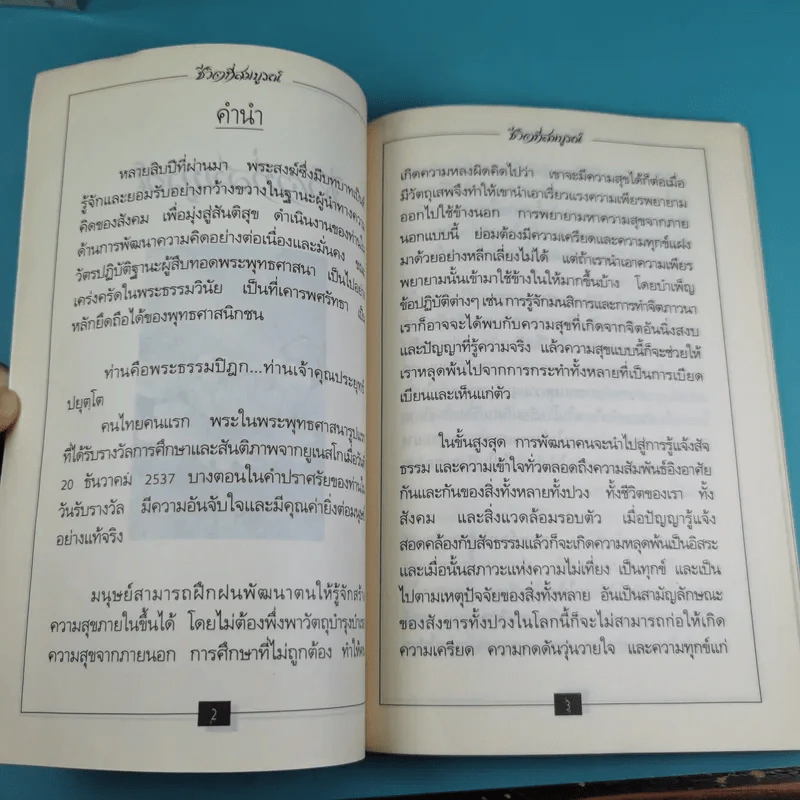 ชีวิตที่สมบูรณ์
คำนำ
หลายสิบปีที่ผ่านมา พระสงฆ์ซึ่งมีบทบาทเป็นที่
รู้จักและยอมรับอย่างกว้างขวางในฐานะผู้นำทางความ
คิดของสังคม เพื่อมุ่งสู่สันติสุข ดำเนินงานของท่านใน
ด้านการพัฒนาความคิดอย่างต่อเนื่องและมั่นคง
วัตรปฏิบัติฐานะผู้สืบทอดพระพุทธศาสนา เป็นไปอย่าง
เคร่งครัดในพระธรรมวินัย เป็นที่เคารพศรัทธา เป็น
หลักยึดถือได้ของพุทธศาสนิกชน
ท่านคือพระธรรมปิฎก...ท่านเจ้าคุณประยุทธ์
ปยุตฺโต
คนไทยคนแรก พระในพระพุทธศาสนารูปแรก
ที่ได้รับรางวัลการศึกษาและสันติภาพจากยูเนสโกเมื่อวันที่
20 ธันวาคม 2537 บางตอนในคำปราศรัยของท่านใน
วันรับรางวัล มีความอันจับใจและมีคุณค่ายิ่งต่อมนุษย์
อย่างแท้จริง
มนุษย์สามารถฝึกฝนพัฒนาตนให้รู้จักสร้าง
ความสุขภายในขึ้นได้ โดยไม่ต้องพึ่งพาวัตถุบำรุงบำเรอ
ความสุขจากภายนอก การศึกษาที่ไม่ถูกต้อง ทำให้คน
2
ชีวิตที่สมบูรณ์
เกิดความหลงผิดคิดไปว่า เขาจะมีความสุขได้ก็ต่อเมื่อ
มีวัตถุเสพจึงทำให้เขานำเอาเรี่ยวแรงความเพียรพยายาม
ออกไปใช้ข้างนอก การพยายามหาความสุขจากภาย
นอกแบบนี้ ย่อมต้องมีความเครียดและความทุกข์แฝง
มาด้วยอย่างหลีกเลี่ยงไม่ได้ แต่ถ้าเรานำเอาความเพียร
พยายามนั้นเข้ามาใช้ข้างในให้มากขึ้นบ้าง โดยบำเพ็ญ
ข้อปฏิบัติต่างๆ เช่น การรู้จักมนสิการและการทำจิตภาวนา
เราก็อาจจะได้พบกับความสุขที่เกิดจากจิตอันนิ่งสงบ
และปัญญาที่รู้ความจริง แล้วความสุขแบบนี้ก็จะช่วยให้
เราหลุดพ้นไปจากการกระทำทั้งหลายที่เป็นการเบียด
เบียนและเห็นแก่ตัว
ในขั้นสูงสุด การพัฒนาคนจะนำไปสู่การรู้แจ้งสัจ
ธรรม และความเข้าใจทั่วตลอดถึงความสัมพันธ์อิงอาศัย
กันและกันของสิ่งทั้งหลายทั้งปวง ทั้งชีวิตของเรา ทั้ง
สังคม และสิ่งแวดล้อมรอบตัว เมื่อปัญญารู้แจ้ง
สอดคล้องกับสัจธรรมแล้วก็จะเกิดความหลุดพ้นเป็นอิสระ
และเมื่อนั้นสภาวะแห่งความไม่เที่ยง เป็นทุกข์ และเป็น
ไปตามเหตุปัจจัยของสิ่งทั้งหลาย อันเป็นสามัญลักษณะ
ของสังขารทั้งปวงในโลกนี้ก็จะไม่สามารถก่อให้เกิด
ความเครียด ความกดดันวุ่นวายใจ และความทุกข์แก่
3